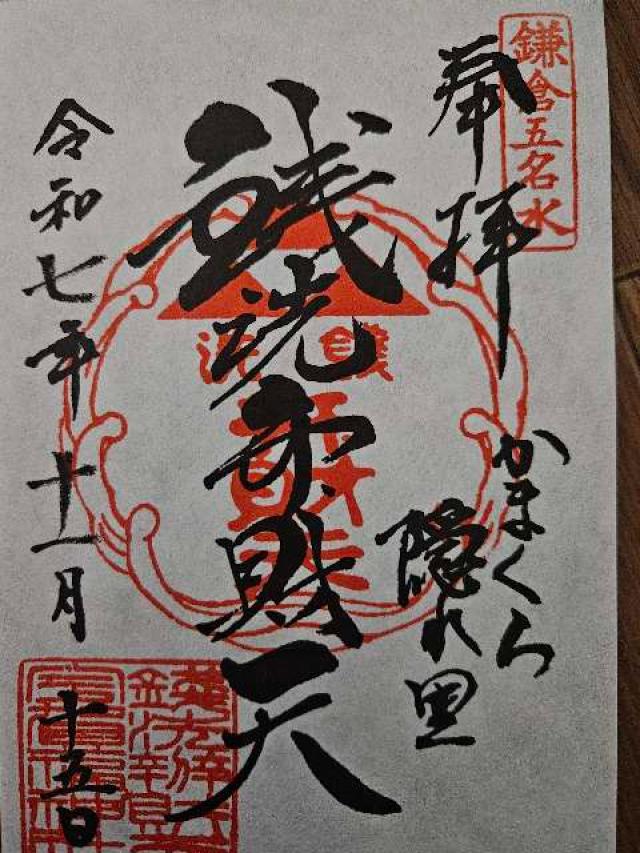 鎌倉五名水
奉拝
かまくら
隠れ里
銭洗弁財天
令和七年十一月
十五日